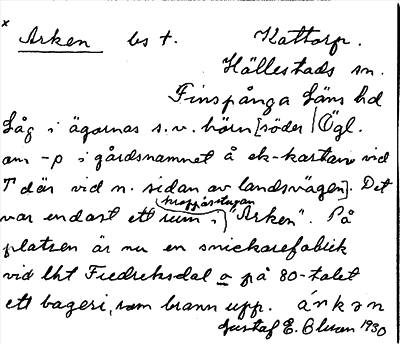 x
Arken bs t. Kattorp.
Hällestads sn.
Finspånga läns hd
Låg i ägornas s.v. hörn [söder | Ögl.
om -p i gårdsnamnet å ek-kartan vid
T där vid n. sidan av landsvägen]. Det
kroppåstugan
var endast ett rum i "Arken". På
platsen är nu en snickarefabrik
vid lht Fredriksdal o på 80-talet
ett bageri, som brann upp. ánkən
Gustaf E. Olsson 1930